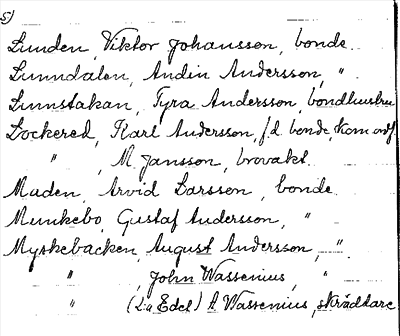 5)
Lunden, Viktor Johansson, bonde
Lunndalen, Andin Andersson, "
Lunnstakan, Tyra Andersson, bondhustru
Lockered, Karl Andersson, f.d. bonde, kom.ordf.
" , M. Jansson, brovakt.
Maden, Arvid Larsson, bonde
Munkebo, Gustaf Andersson, "
Myskebacken, August Andersson, "
" , John Wassenius, "
" (Lu Edet) A Wassenius, skräddare